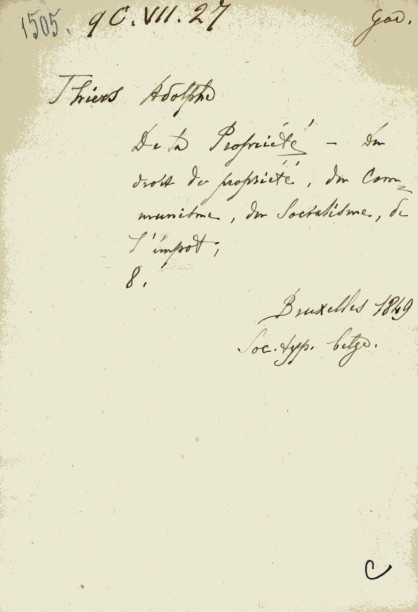 1505. 9 C. VII. 27 God.
Thiers Adolphe
De la Propriété – Du
droit de propriété, du Com-
munisme, du Socialisme, de
l'impot;
8.
Bruxelles 1849
Soc. typ. belge.
C